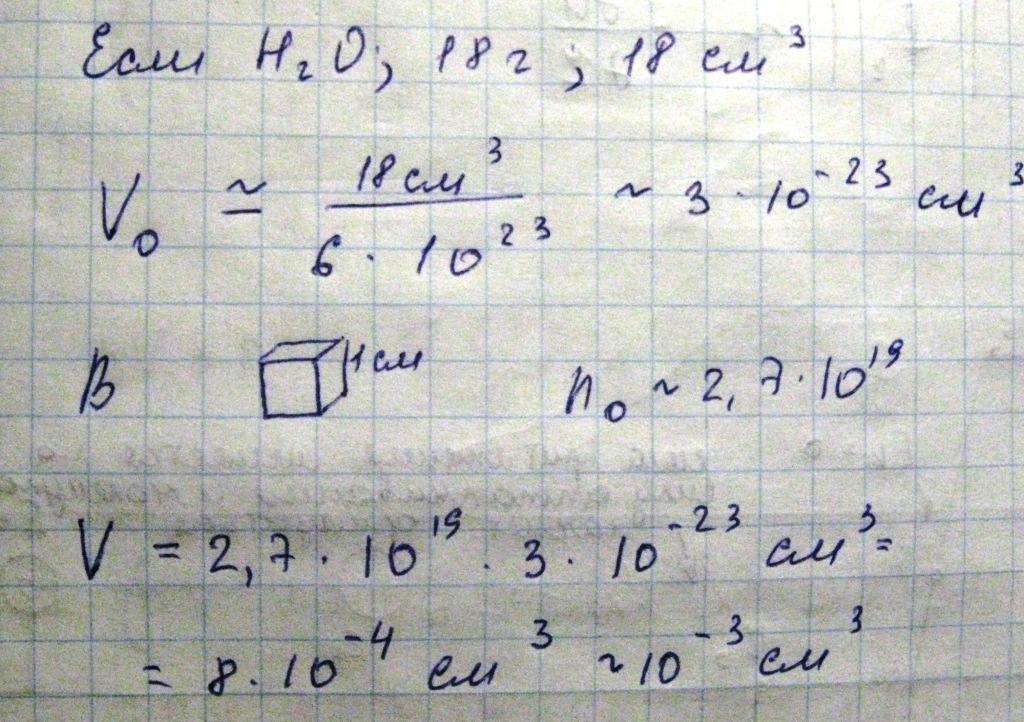 Если H₂O; 18 г; 18 см³
V₀ ≃ 18 см³ / 6 · 10²³ ~ 3 · 10⁻²³ см³
В 1 см n₀ ~ 2,7 · 10¹⁹
V = 2,7 · 10¹⁹ · 3 · 10⁻²³ см³ =
= 8 · 10⁻⁴ см³ ~ 10⁻³ см³